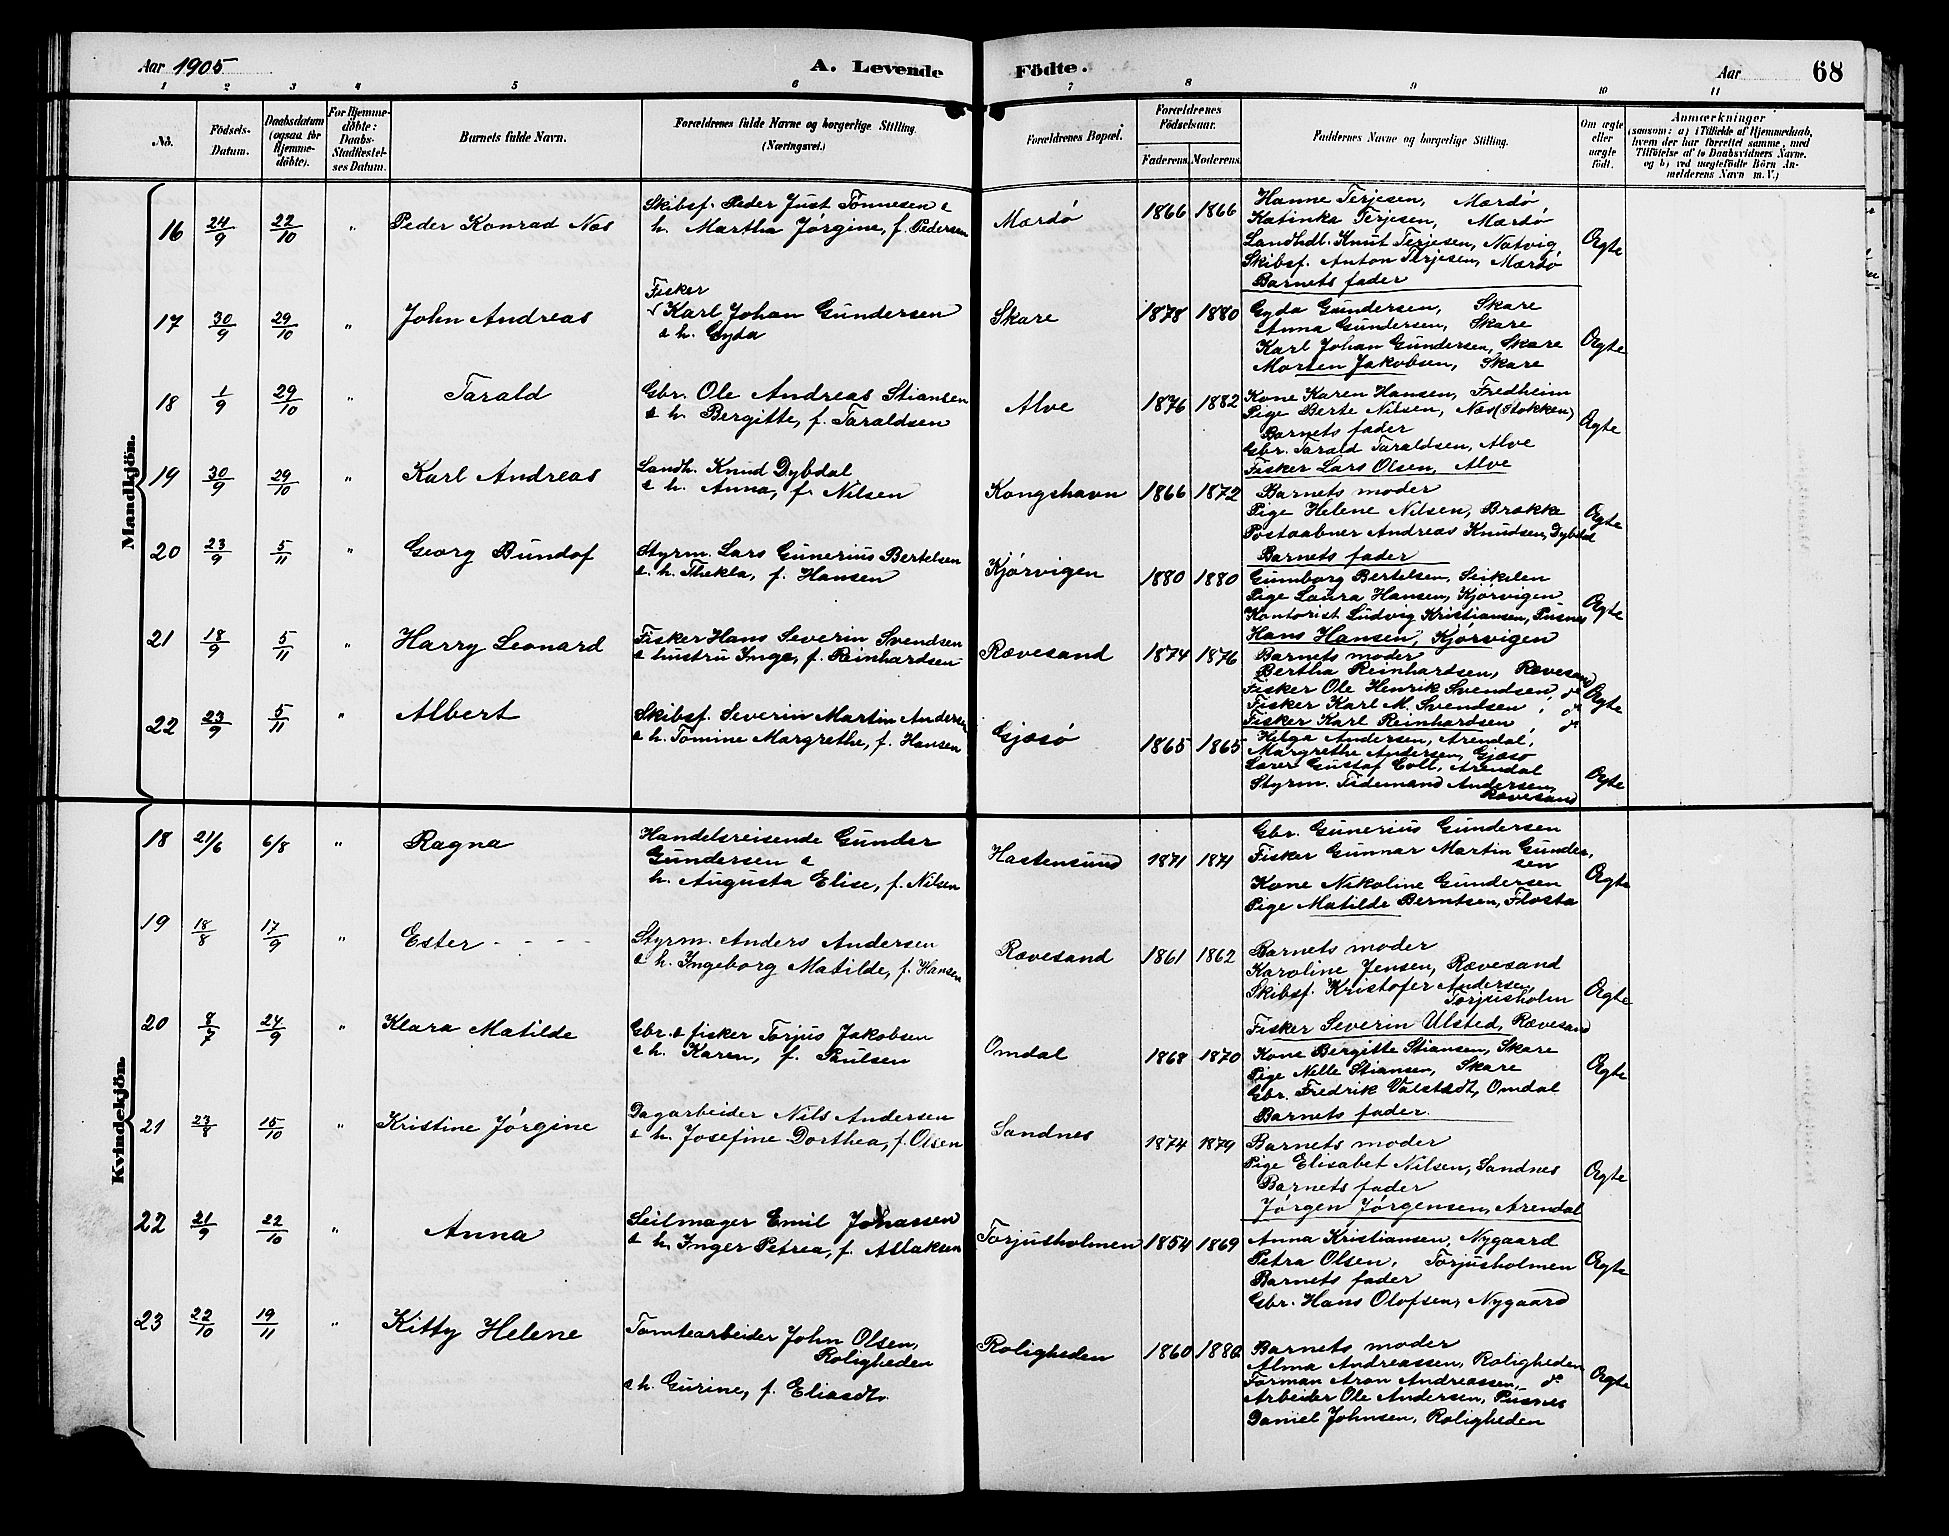 Aar 1905
A. Levende
Födte.
Aar
68
1 2 3 4 5 6 7 8 9 10 11
No.
Födsels-
Datum.
Daabsdatum
(ogsaa for
Hjemme-
döbte).
For Hjemme-
döbte:
Daabs-
Stadfæstel-
ses Datum.
Barnets fulde Navn.
Forældrenes fulde Navne og borgerlige Stilling.
(Næringsvei.)
Forældrenes Bopæl.
Forældrenes
Födselsaar.
Faderens. Moderens.
Faddernes Navne og borgerlige Stilling.
Om ægte
eller
uægte
födt.
Anmærkninger
(saasom: a) i Tilfælde af Hjemmedaab,
hvem der har forrettet samme, med
Tilföielse af to Daabsvidners Navne.
og b) ved uægtefödte Börn An-
melderens Navn m. V.)
Mandkjön.
16 24/9 22/10 " Peder Konrad Nas
Skibsf. Peder Just Tönnesen &
h. Martha Jørgine, f. Pedersen
Mærdø 1866 1866
Hanne Terjesen, Mærdø
Katinka Terjesen, Mærdø
Landhdl. Knut Terjesen, Natvig
Skibsf. Anton Terjesen, Mærdø
Barnets fader
Ægte
17 30/9 29/10 " John Andreas
Fisker
Karl Johan Gundersen
& h. Gyda
Skare 1878 1880
Gyda Gundersen, Skare
Anna Gundersen, Skare
Karl Johan Gundersen, Skare
Morten Jakobsen, Skare
Ægte
18 1/9 29/10 " Tarald
Gbr. Ole Andreas Stiansen
& h. Bergitte, f. Taraldsen
Alve 1876 1882
Kone Karen Hansen, Fredheim
Pige Berte Nilsen, Næs (Stokken)
Barnets fader
Gbr. Tarald Taraldsen, Alve
Fisker Lars Olsen, Alve
Ægte
19 30/9 29/10 " Karl Andreas
Landh. Knud Dybdal
& h. Anna, f. Nilsen
Kongshavn 1866 1872
Barnets moder
Pige Helene Nilsen, Brække
Postaabner Andreas Knudsen, Dybdal
Barnets fader
Ægte
20 23/9 5/11 " Georg Bundof
Styrm. Lars Gunerius Bertelsen
& h. Thekla, f. Hansen
Kjørvigen 1880 1880
Gumborg Bertelsen, Seikelen
Pige Laura Hansen, Kjørvigen
Kontorist Ludvig Kristiansen, Pusnes
Hans Hansen, Kjørvigen
Ægte
21 18/9 5/11 " Harry Leonard
Fisker Hans Severin Svendsen
& hustru Inga, f. Reinhardsen
Rævesand 1874 1876
Barnets moder
Bertha Reinhardsen, Rævesand
Fisker Ole Henrik Svendsen, do
Fisker Karl M. Svendsen, do
Fisker Karl Reinhardsen, do
Ægte
22 23/9 5/11 " Albert
Skibsf. Severin Martin Andersen
& h. Tomine Margrethe, f. Hansen
Gjæsø 1865 1865
Helga Andersen, Arendal,
Margrethe Andersen, Gjæsø
Lærer Gustaf Coll, Arendal
Styrm. Tidemand Andersen,
Rævesand
Ægte
Kvindekjön.
18 21/6 6/8 " Ragna
Handelsreisende Gunder
Gundersen &
h. Augusta Elise, f. Nilsen
Hastensund 1871 1871
Gbr. Gunerius Gundersen
Fisker Gunnar Martin Gunder-
sen
Kone Nikoline Gundersen
Pige Matilde Berntsen, Flosta
Ægte
19 18/8 17/9 " Ester
Styrm. Anders Andersen
& h. Ingeborg Matilde, f. Hansen
Rævesand 1861 1862
Barnets moder
Karoline Jensen, Rævesand
Skibsf. Kristofer Andersen,
Torjusholm
Fisker Severin Ulsted, Rævesand
Ægte
20 8/7 24/9 " Klara Matilde
Gbr. & fisker Torjus Jakobsen
& h. Karen, f. Paulsen
Omdal 1868 1870
Kone Bergitte Stiansen, Skare
Pige Nelle Stiansen, Skare
Gbr. Fredrik Valstadt, Omdal
Barnets fader.
Ægte
21 23/8 15/10 " Kristine Jørgine
Dagarbeider Nils Andersen
& h. Josefine Dorthea, f. Olsen
Sandnes 1874 1879
Barnets moder
Pige Elisabet Nilsen, Sandnes
Barnets fader
Jørgen Jørgensen, Arendal
Ægte
22 21/9 22/10 " Anna
Seilmager Emil Johassen
& h. Inger Petrea, f. Aslaksen
Torjusholmen 1854 1869
Anna Kristiansen, Nygaard
Petra Olsen, Torjusholmen
Barnets fader
Gbr. Hans Olofsen, Nygaard
Ægte
23 22/10 19/11 " Kitty Helene
Tomtearbeider John Olsen,
Roligheden
& h. Gurine, f. Eliasdtr
Roligheden 1860 1880
Barnets moder
Alma Andreassen, Roligheden
Forman Aron Andreassen, do
Arbeider Ole Andersen, Pusnes
Daniel Johnsen, Roligheden
Ægte